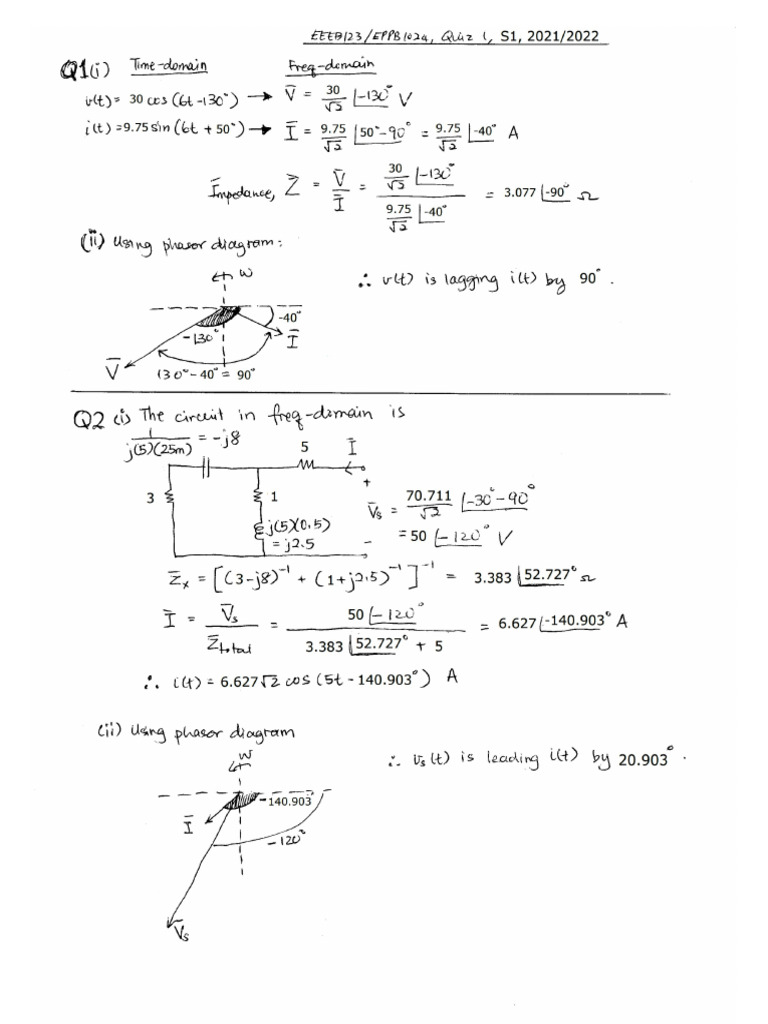 EEEB123/EPPB1024, Quiz 1, S1, 2021/2022
Q1(i) Time-domain Freq-domain
v(t) = 30 cos (6t -130°) → V̄ = 30/√2 ∠-130° V
i(t) = 9.75 sin (6t + 50°) → Ī = 9.75/√2 ∠50°-90° = 9.75/√2 ∠-40° A
Impedance, Z̄ = V̄/Ī = (30/√2 ∠-130°)/(9.75/√2 ∠-40°) = 3.077 ∠-90° Ω
(ii) Using phasor diagram:
ω
∴ v(t) is lagging i(t) by 90°.
-40°
-130°
Ī
V̄
130°-40° = 90°
Q2 (i) The circuit in freq-domain is
1/(j(5)(25m)) = -j8
5
Ī
+
3
1
V̄s = 70.711/√2 ∠-30°-90°
j(5)(0.5)
= j2.5
= 50 ∠-120° V
-
Z̄x = [(3-j8)⁻¹ + (1+j2.5)⁻¹]⁻¹ = 3.383 ∠52.727° Ω
Ī = V̄s/Z̄total = (50 ∠-120°)/(3.383 ∠52.727° + 5) = 6.627 ∠-140.903° A
∴ i(t) = 6.627√2 cos (5t - 140.903°) A
(ii) Using phasor diagram
ω
∴ vs(t) is leading i(t) by 20.903°.
-140.903°
Ī
-120°
V̄s